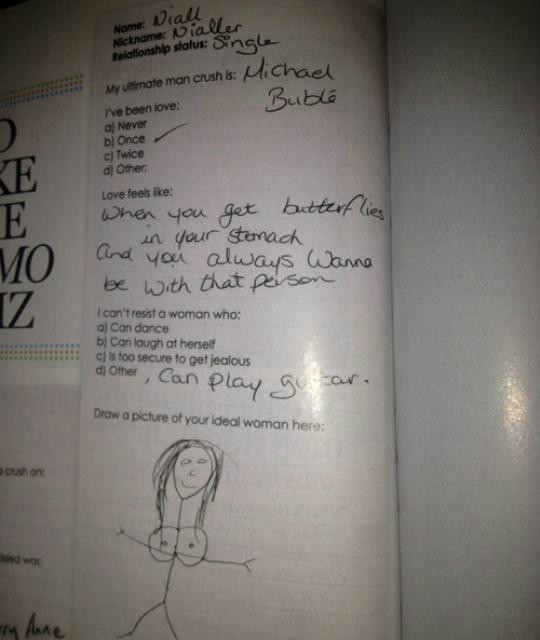 Name: Niall
Nickname: Nialler
Relationship status: Single
My ultimate man crush is: Michael
Bublé
I've been love:
a) Never
b) Once ✓
c) Twice
d) Other:
Love feels like:
When you get butterflies
in your stomach
and you always wanna
be with that person
I can't resist a woman who:
a) Can dance
b) Can laugh at herself
c) Is too secure to get jealous
d) Other, Can play guitar.
Draw a picture of your ideal woman here:
O
KE
E
MO
IZ
crush on:
was:
Anne